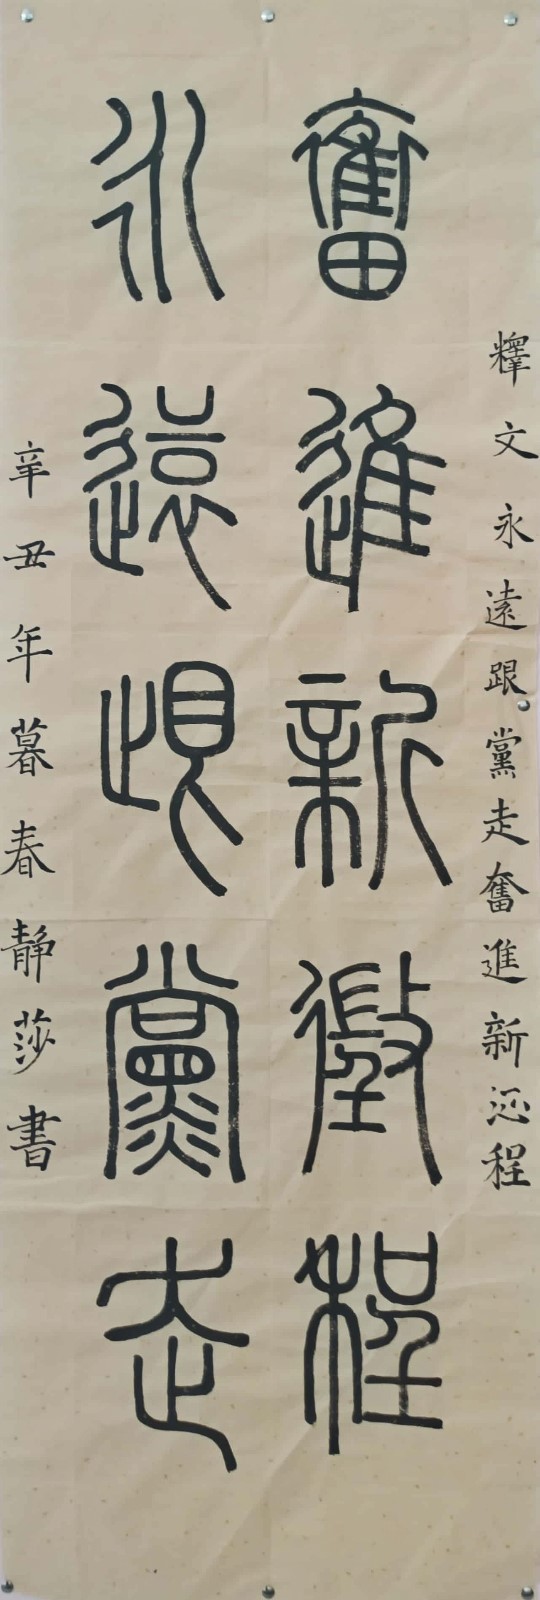 釋文永遠跟黨走奮進新征程
奮進新徵程
永遠跟黨走
辛丑年暮春静莎書